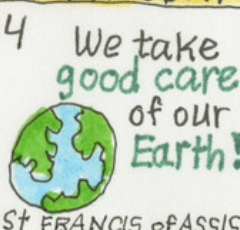 4
We take
good care
of our
Earth!
St FRANCIS of ASSIS